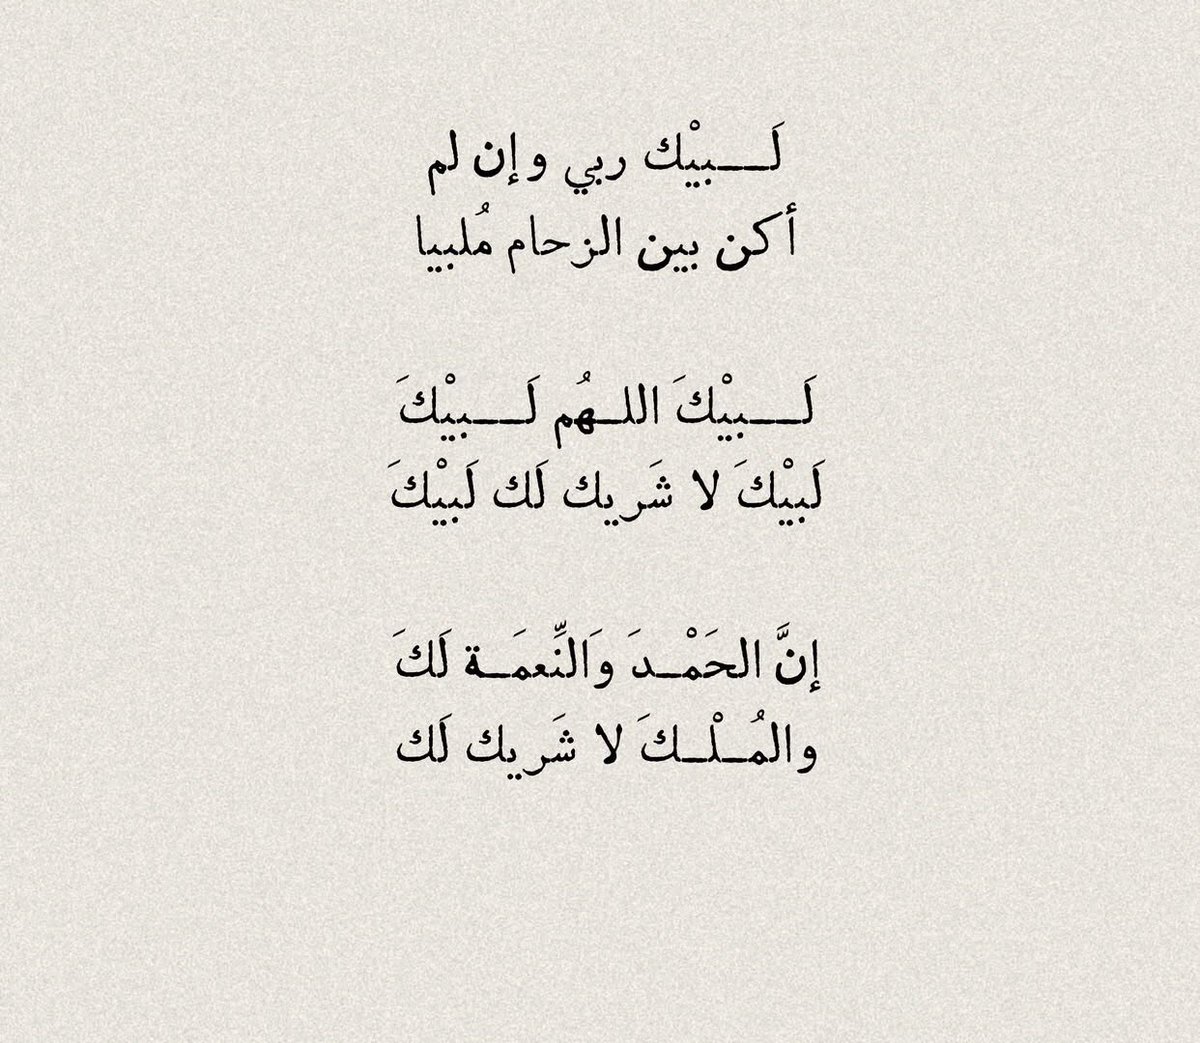 لَـــبيْك ربي وإن لم
أكن بين الزحام مُلبيا
لَـــبيْكَ اللـهُم لَـــبيْكَ
لَبيْكَ لا شَريك لَك لَبيْكَ
إنَّ الحَمْـدَ وَالنِّعمَـة لَكَ
والمُـلْـكَ لا شَريك لَك